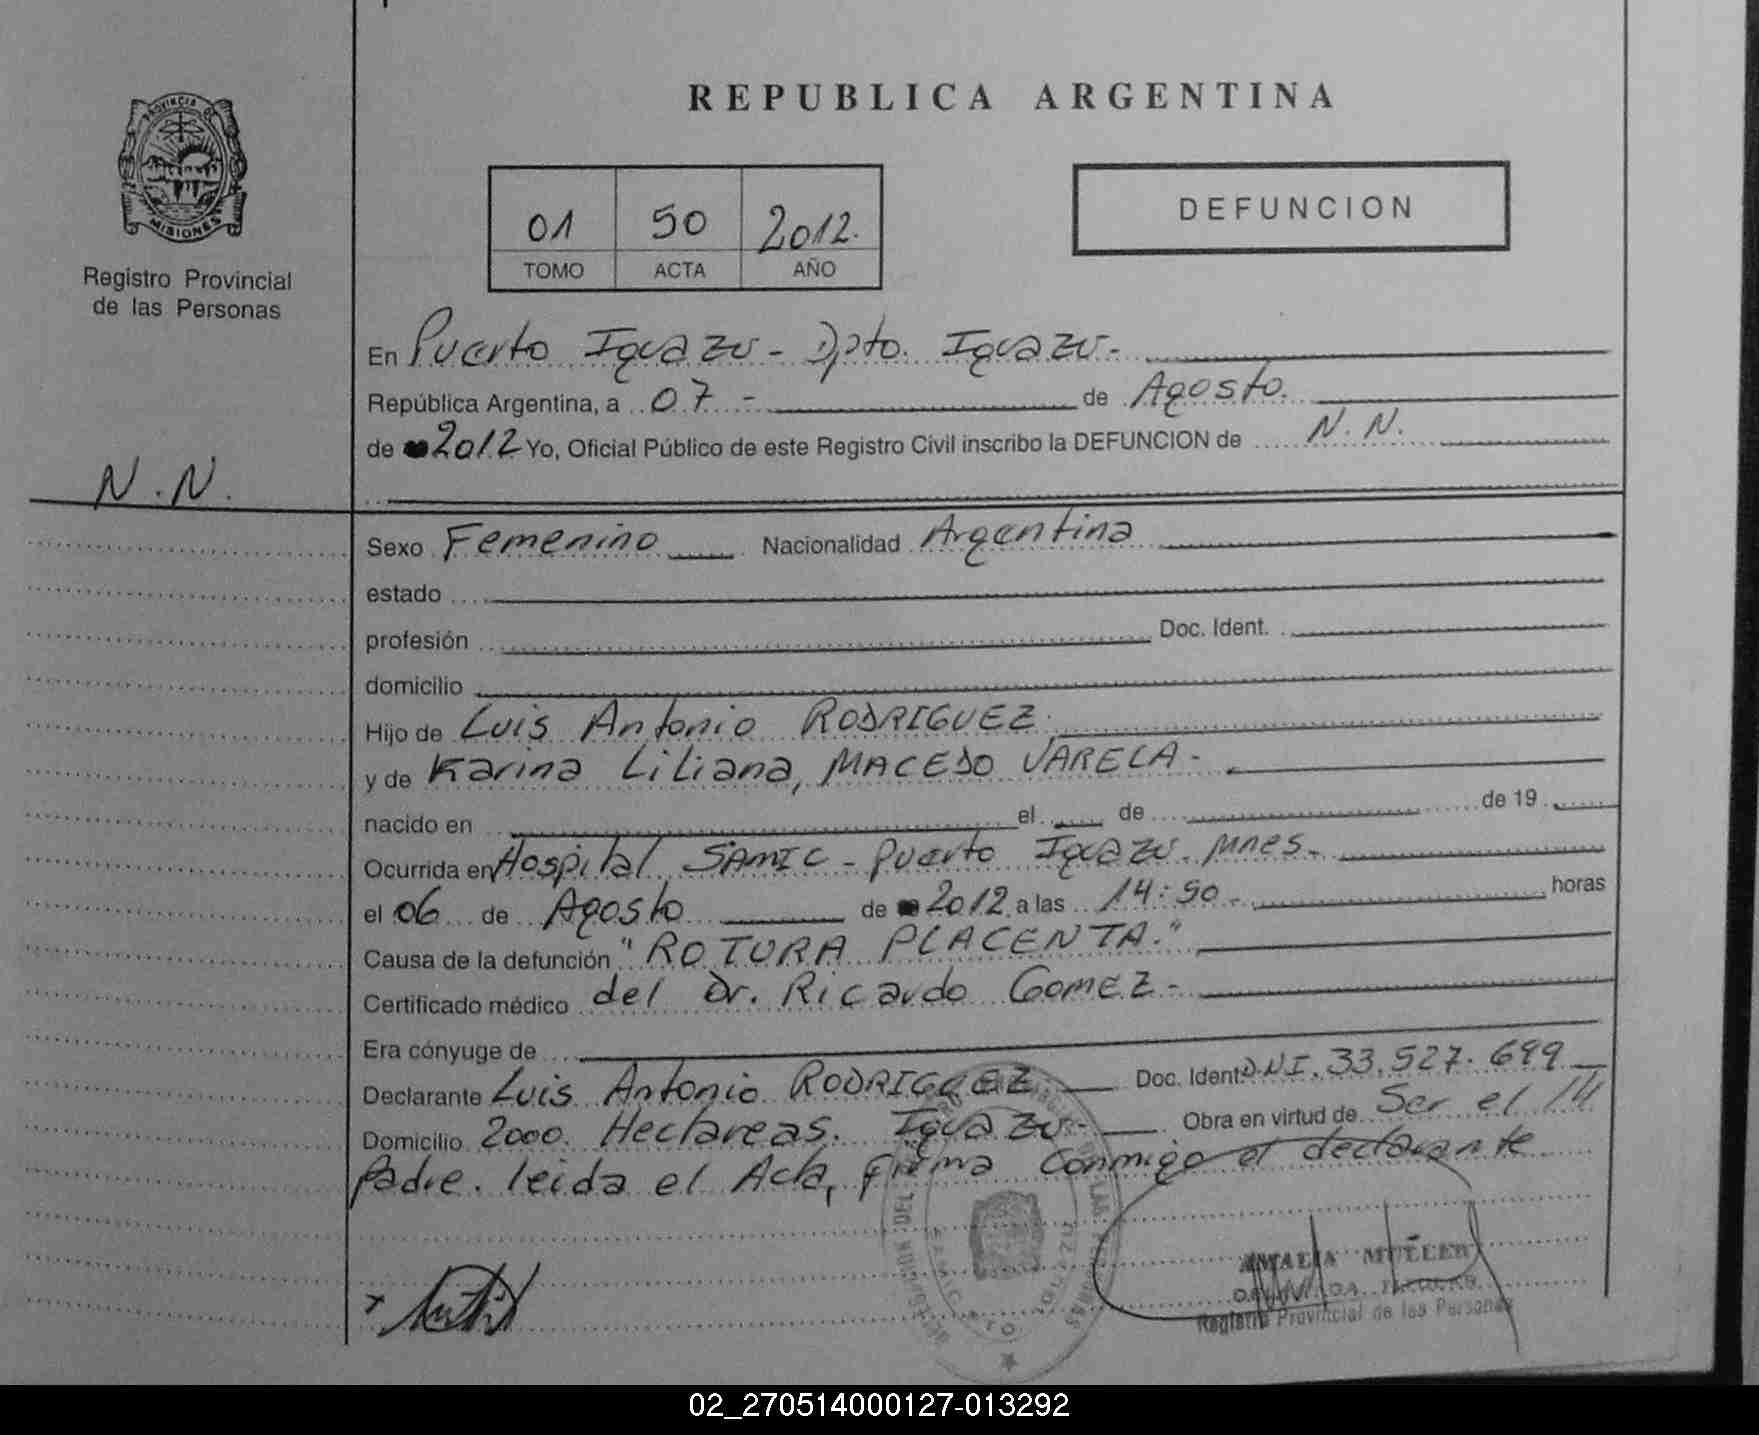 REPUBLICA ARGENTINA
PROVINCIA DE
MISIONES
Registro Provincial
de las Personas
01 50 2012.
TOMO ACTA AÑO
DEFUNCION
En Puerto Iguazu - Dpto. Iguazu -
República Argentina, a 07 - de Agosto.
de 2012 Yo, Oficial Público de este Registro Civil inscribo la DEFUNCION de N. N.
N. N.
Sexo Femenino Nacionalidad Argentina
estado
profesión Doc. Ident.
domicilio
Hijo de Luis Antonio RODRIGUEZ
y de Karina Liliana, MACEDO VARELA -
nacido en el de de 19
Ocurrida en Hospital SAMIC - Puerto Iguazu. Mnes -
el 06 de Agosto de 2012 a las 14:50 - horas
Causa de la defunción "ROTURA PLACENTA."
Certificado médico del Dr. Ricardo GOMEZ -
Era cónyuge de
Declarante Luis Antonio RODRIGUEZ Doc. Ident. DNI. 33.527.699
Domicilio 2000 Hectareas. Iguazu - Obra en virtud de Ser el
Padre. leida el Acta, firma Conmigo el declarante
MULLER
Registro Provincial de las Personas
02_270514000127-013292